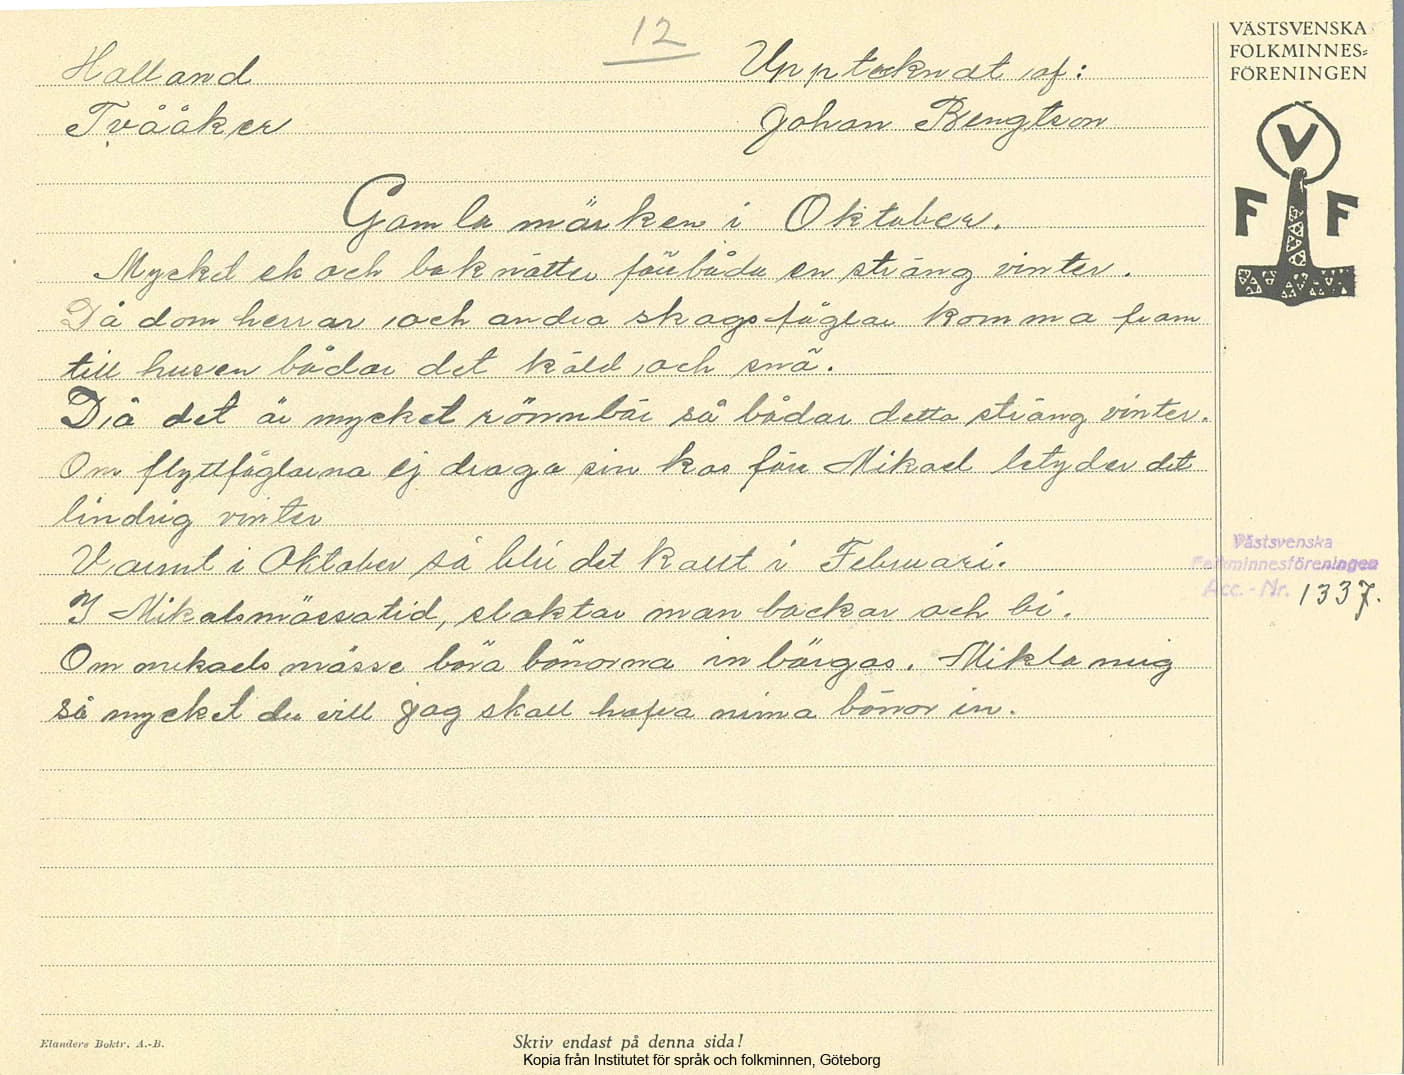 12
Halland
Upptecknat af:
Tvååker
Johan Bengtson
VÄSTSVENSKA
FOLKMINNES-
FÖRENINGEN
V
F F
Gamla märken i Oktober.
Myckel ek och boknötter förebåda en sträng vinter.
Då domherrar och andra skogsfåglar komma fram
till husen bådar det köld och snö.
Då det är mycket rönnbär så bådar detta sträng vinter.
Om flyttfåglarna ej draga sin kos före Mikael betyder det
lindrig vinter
Varmt i Oktober så blir det kallt i Februari.
I Mikalsmässatid, slaktar man bockar och bi.
Om mikaels mässe böra bönorna inbärgas. Mikla mig
så mycket du vill jag skall hafva mina bönor in.
Västsvenska
Folkminnesföreningen
Acc.-Nr. 1337.
Elanders Boktr. A.-B.
Skriv endast på denna sida!
Kopia från Institutet för språk och folkminnen, Göteborg